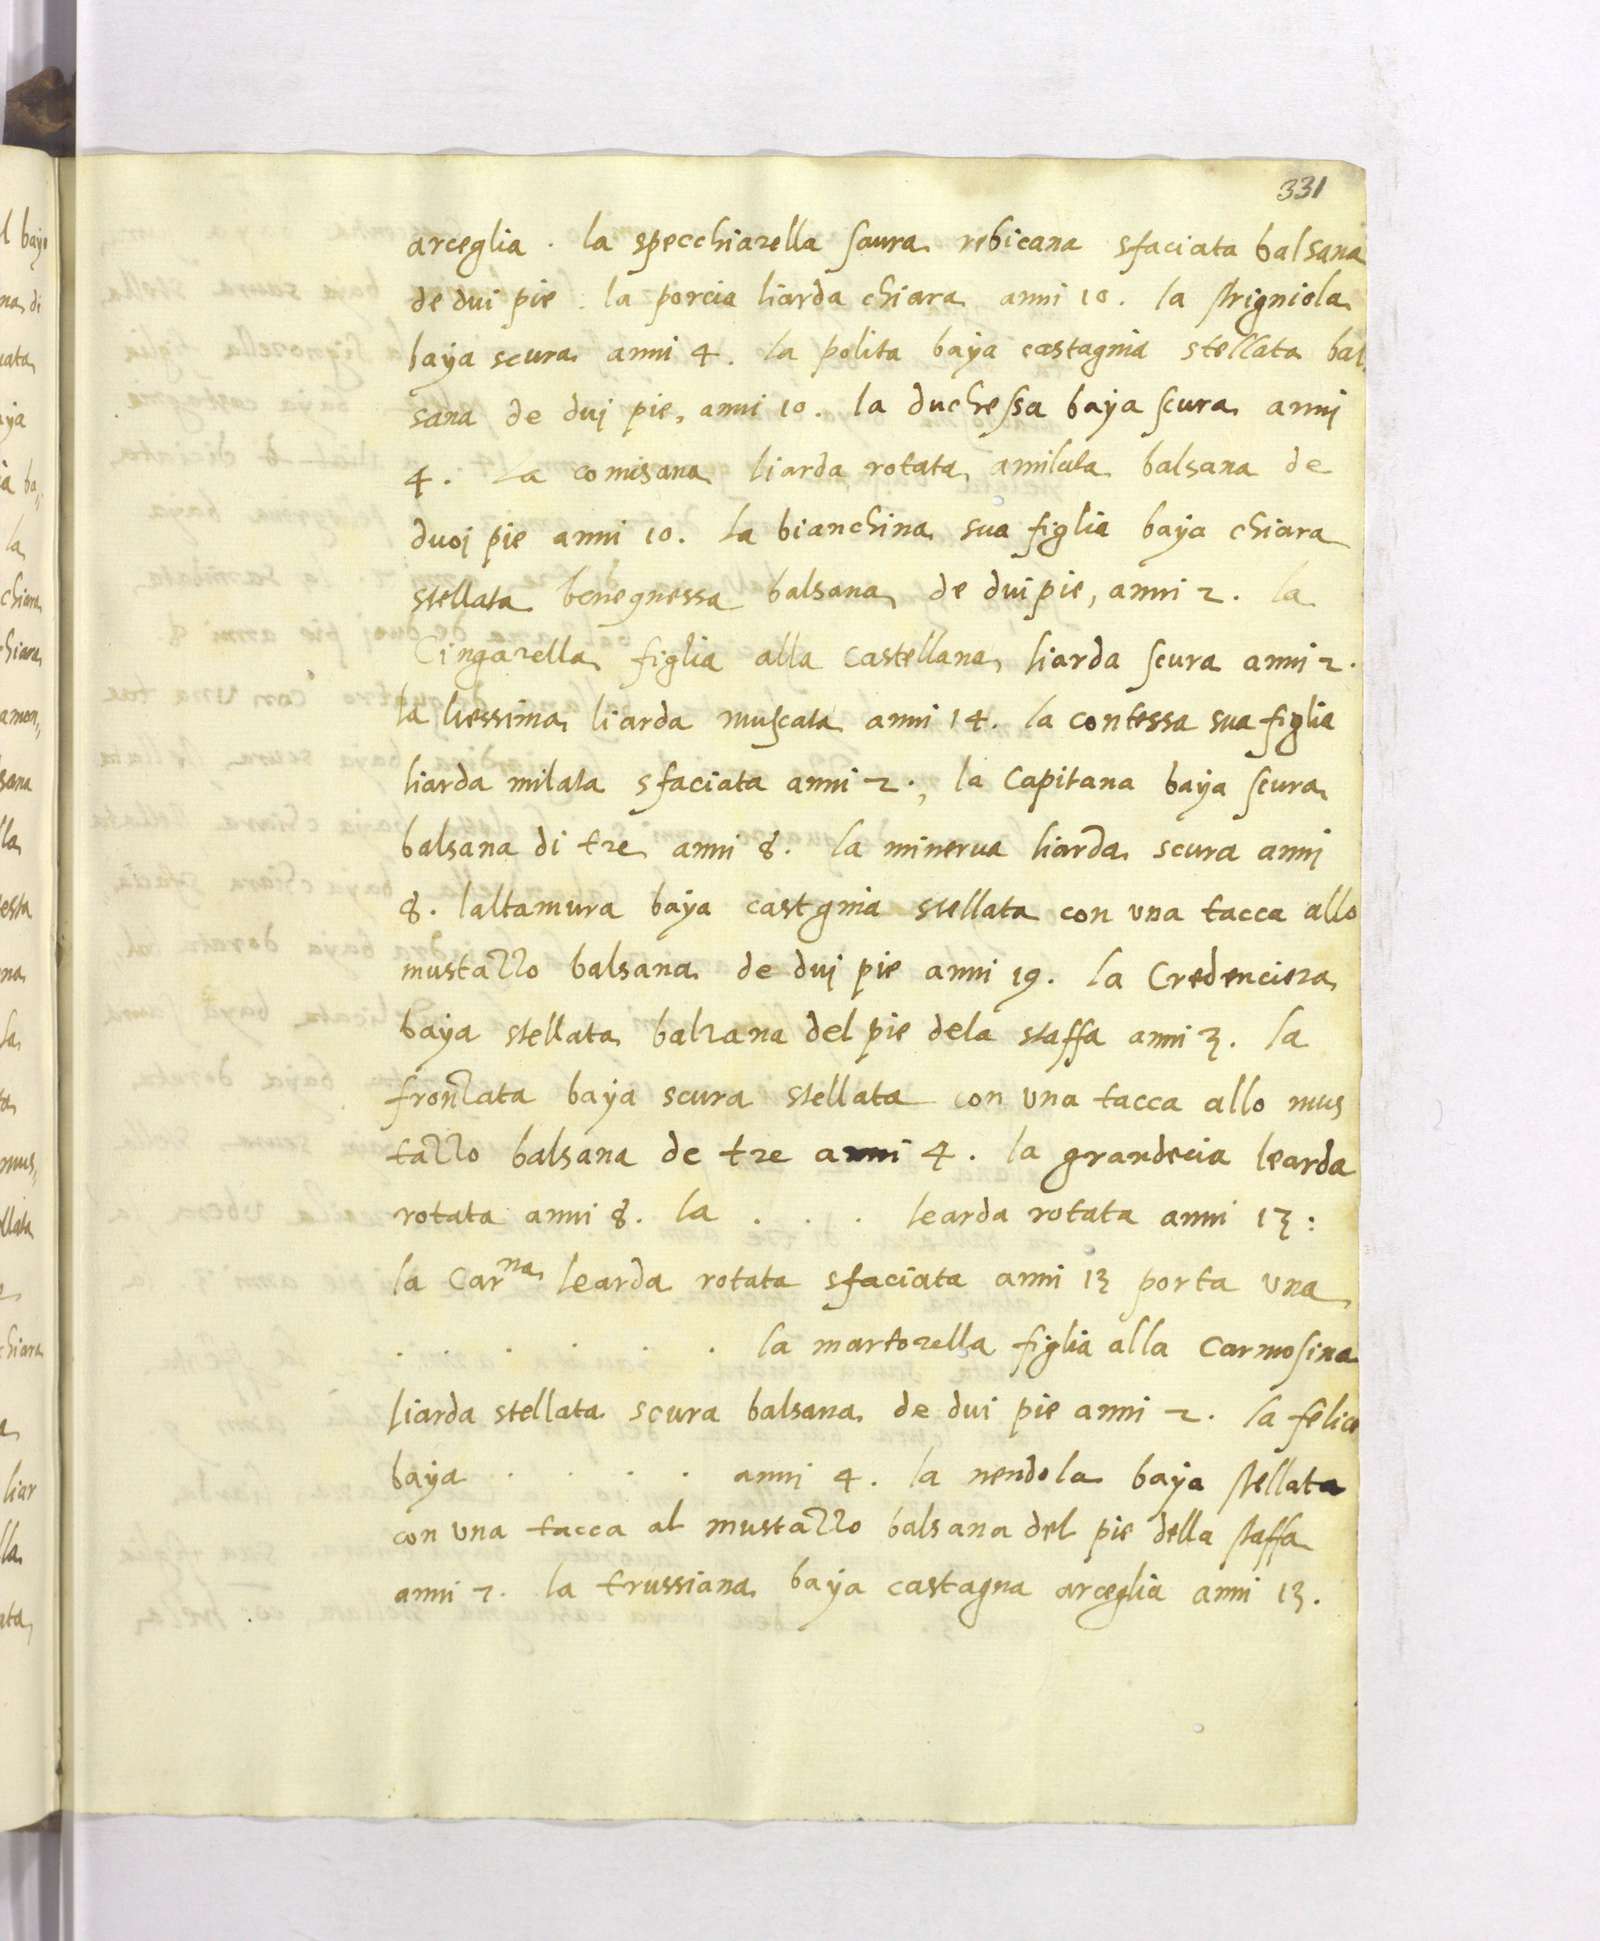 331
arceglia . la specchiarella saura rebicana sfaciata balsana
de dui pie . la porcia liarda chiara anni 10. la strigniola
baya scura anni 4. la polita baya castagnia stellata bal
sana de duj pie, anni 10. la duchessa baya scura annj
4. La comisana liarda rotata amilata balsana de
duoj pie anni 10. La bianchina sua figlia baya chiara
stellata benegnessa balsana de dui pie, anni 2. La
Cingarella figlia alla castellana liarda scura anni 2.
la liessima liarda muscata anni 14. la contessa sua figlia
liarda milata sfaciata anni 2., la Capitana baya scura
balsana di tre anni 8. la minerua liarda scura annj
8. laltamura baya castgnia stellata con una tacca allo
mustazzo balsana de duj pie anni 19. la Credenciera
baya stellata balzana del pie dela staffa anni 3. la
frontata baya scura stellata con una tacca allo mus
tazzo balsana de tre anni 4. la grandecia learda
rotata anni 8. La . . . learda rotata anni 13:
la Car^na learda rotata sfaciata anni 13 porta una
. . . . . . la martorella figlia alla Carmosina
liarda stellata scura balsana de dui pie anni 2. la felice
baya . . . . anni 4. la nendola baya stellata
con una tacca al mustazzo balsana del pie della staffa
anni 2. la trussiana baya castagna arceglia anni 13.